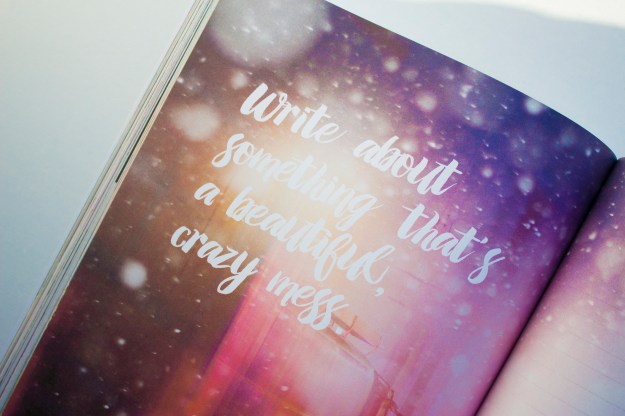 Write about
something that's
a beautiful,
crazy mess.